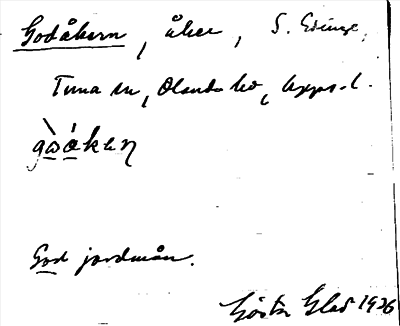 Godåkern, åker, S. Edinge,
Tuna sn, Olands hd, Upps. l.
gò̱ó̱ken
God jordmån.
Gösta Elas 1926